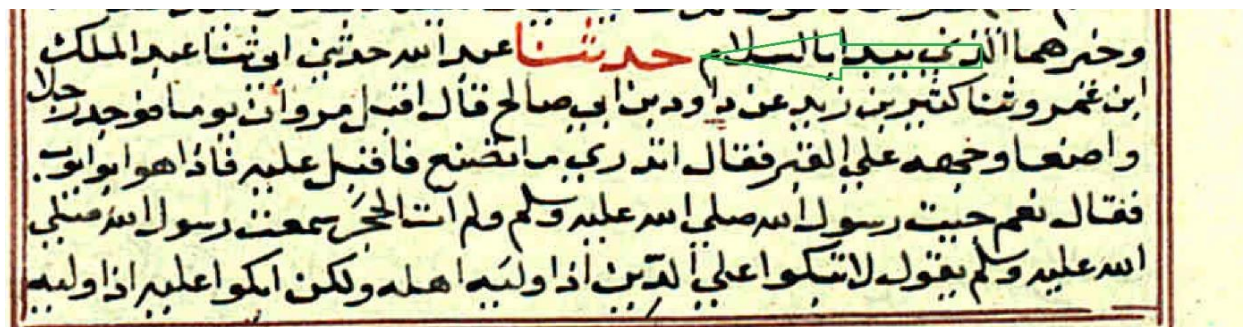 وخيرهما الذي يبدا بالسلام حدثنا عبد الله حدثني ابي ثنا عبد الملك
ابن عمرو ثنا كثير بن زيد عن داود بن ابي صالح قال اقبل مروان يوما فوجد رجلا
واضعا وجهه علي القبر فقال اتدري ما تصنع فاقبل عليه فاذا هو ابو ايوب
فقال نعم جيت رسول الله صلي الله عليه وسلم ولم آت الحجر سمعت رسول الله صلي
الله عليه وسلم يقول لا تبكوا علي الدين اذا وليه اهله ولكن ابكوا عليه اذا وليه